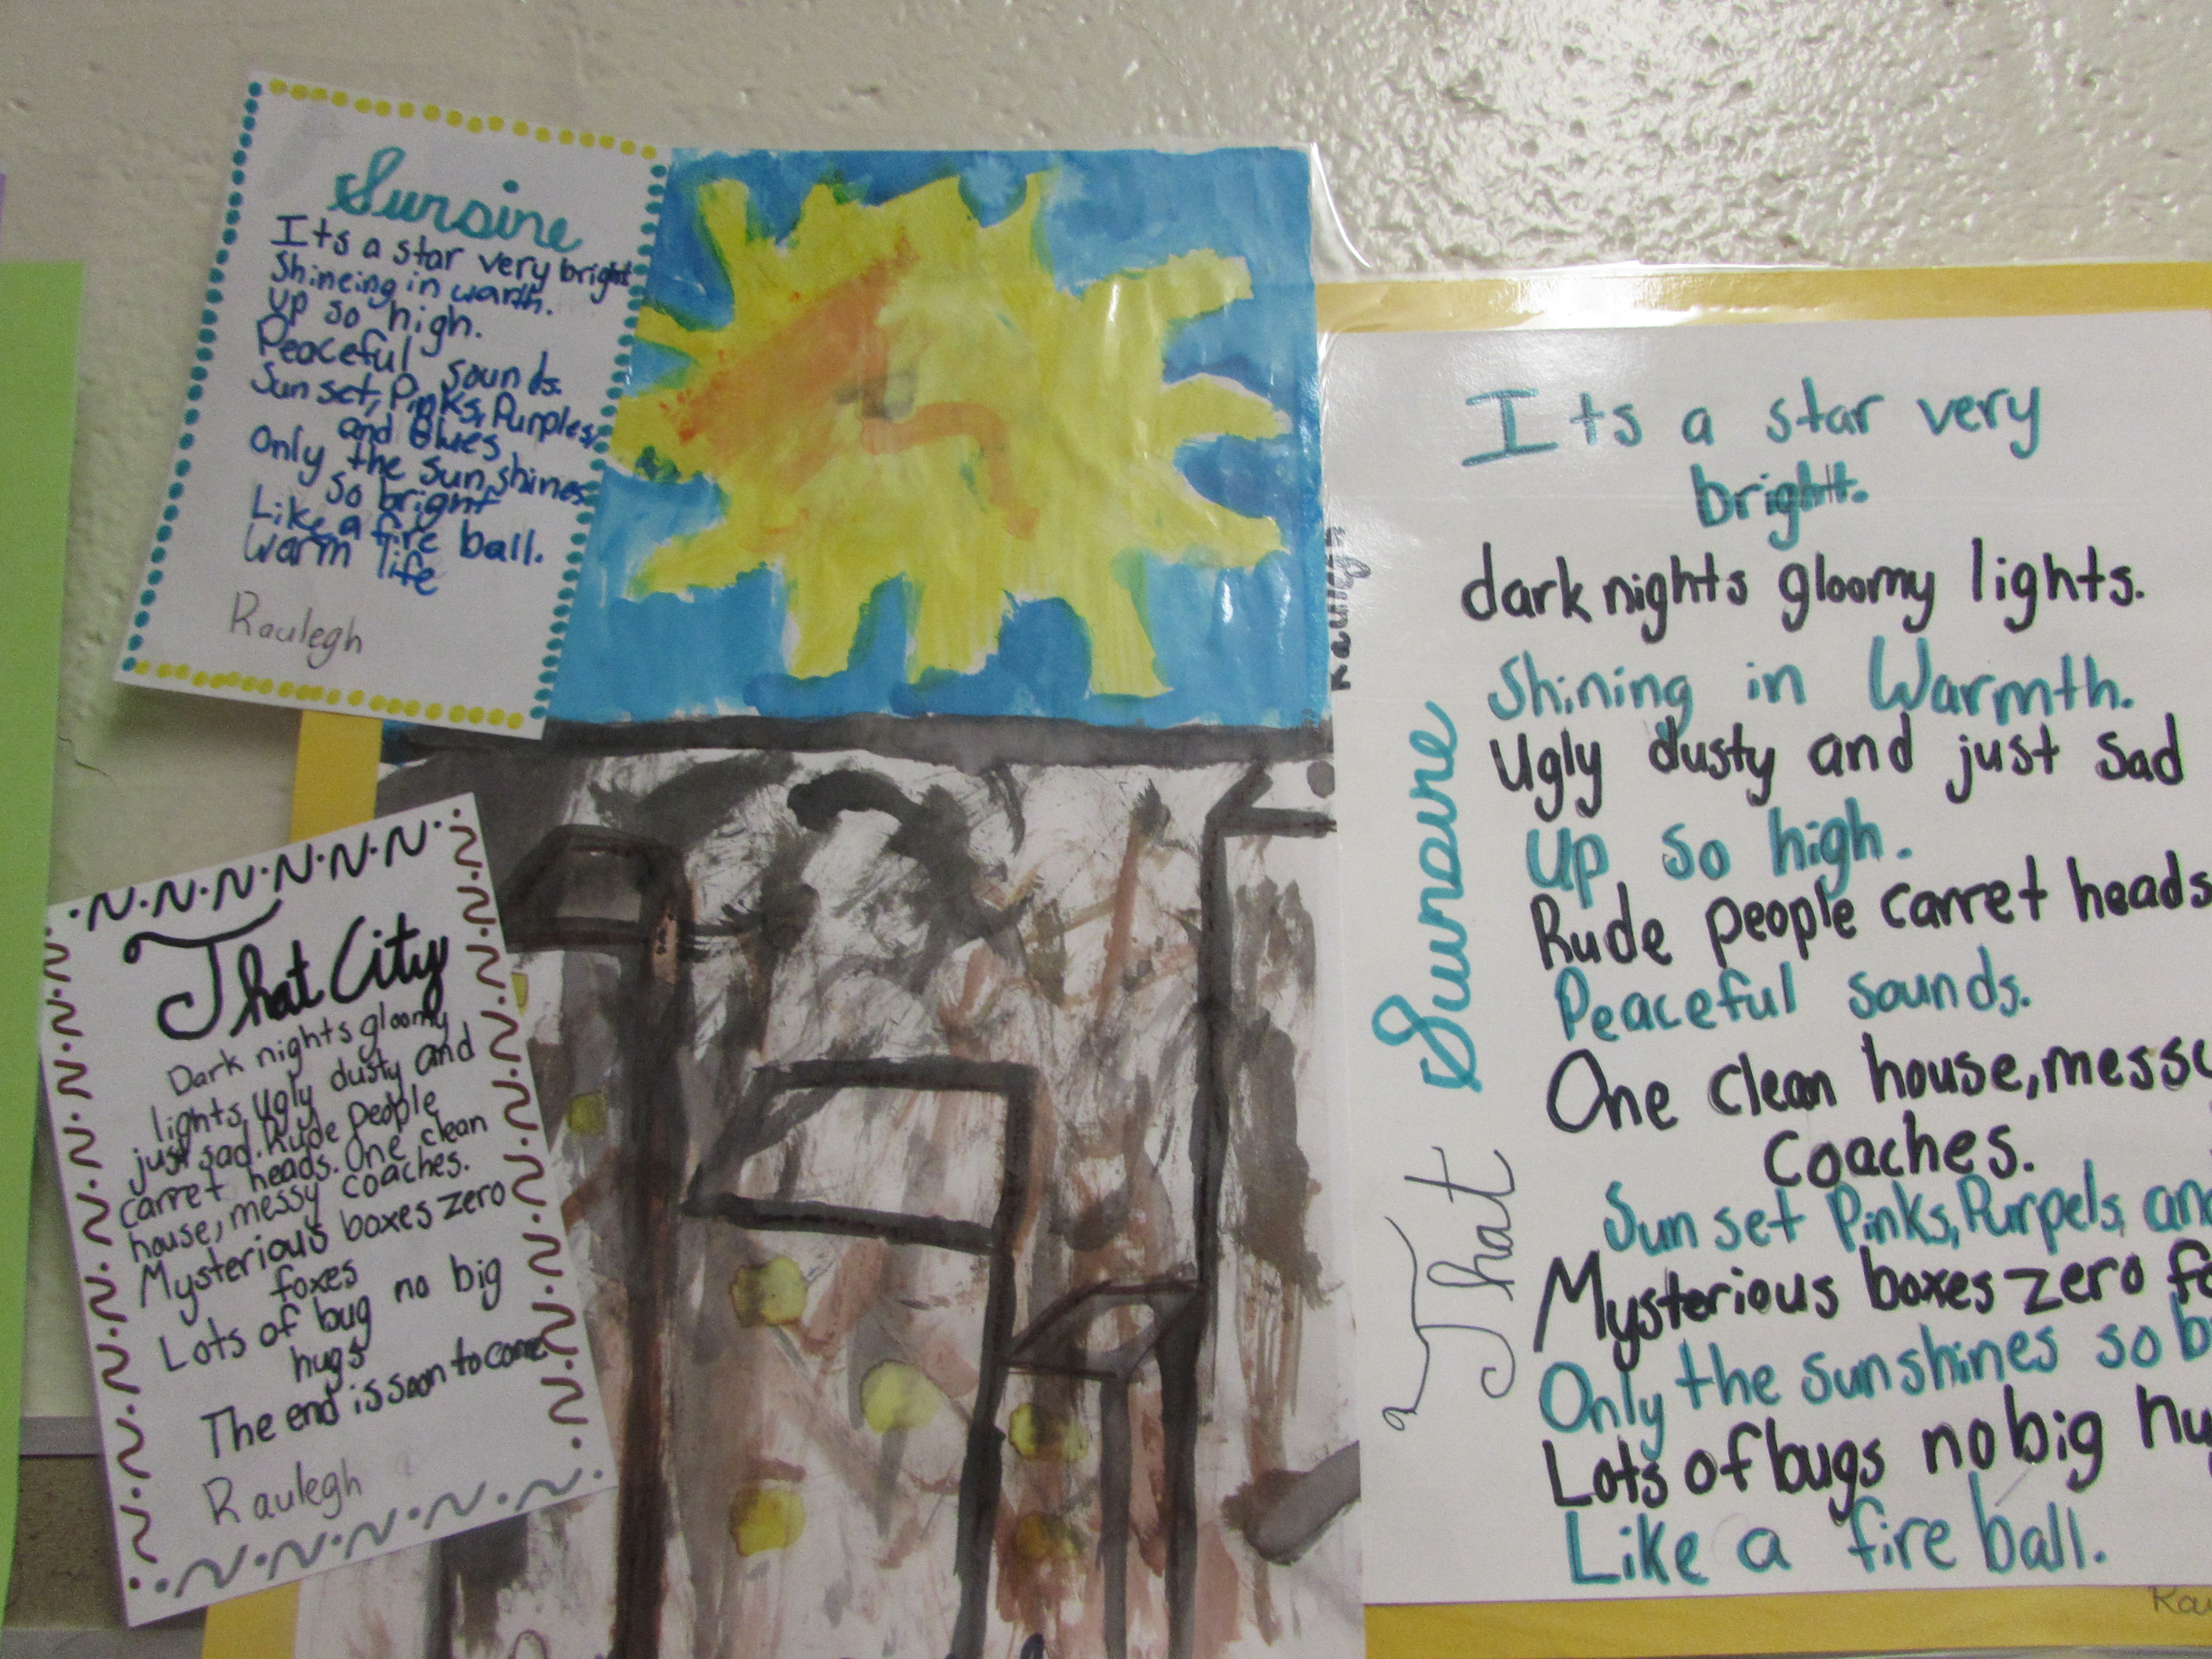 Sunsine
Its a star very bright
Shineing in warth.
up so high.
Peaceful sounds.
Sun set, Pinks, Purples,
and Blues
Only the sun shines
so bright
Like a fire ball.
Warm life
Raulegh
That City
Dark nights gloomy
lights, Ugly dusty and
just sad. Rude people
carret heads. One clean
house, messy coaches.
Mysterious boxes zero
foxes
Lots of bug no big
hugs
The end is soon to come
Raulegh
Raulegh
That Sunsine
Its a star very
bright.
dark nights gloomy lights.
Shining in Warmth.
Ugly dusty and just sad
Up so high.
Rude people carret heads
Peaceful sounds.
One clean house, mess
Coaches.
Sun set Pinks, Purpels, an
Mysterious boxes zero fo
Only the sun shines so b
Lots of bugs no big hu
Like a fire ball.
Rau